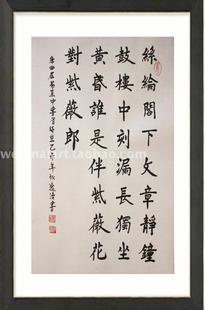 絲綸閣下文章靜鐘
鼓樓中刻漏長獨坐
黃昏誰是伴紫薇花
對紫薇郎
唐白居易